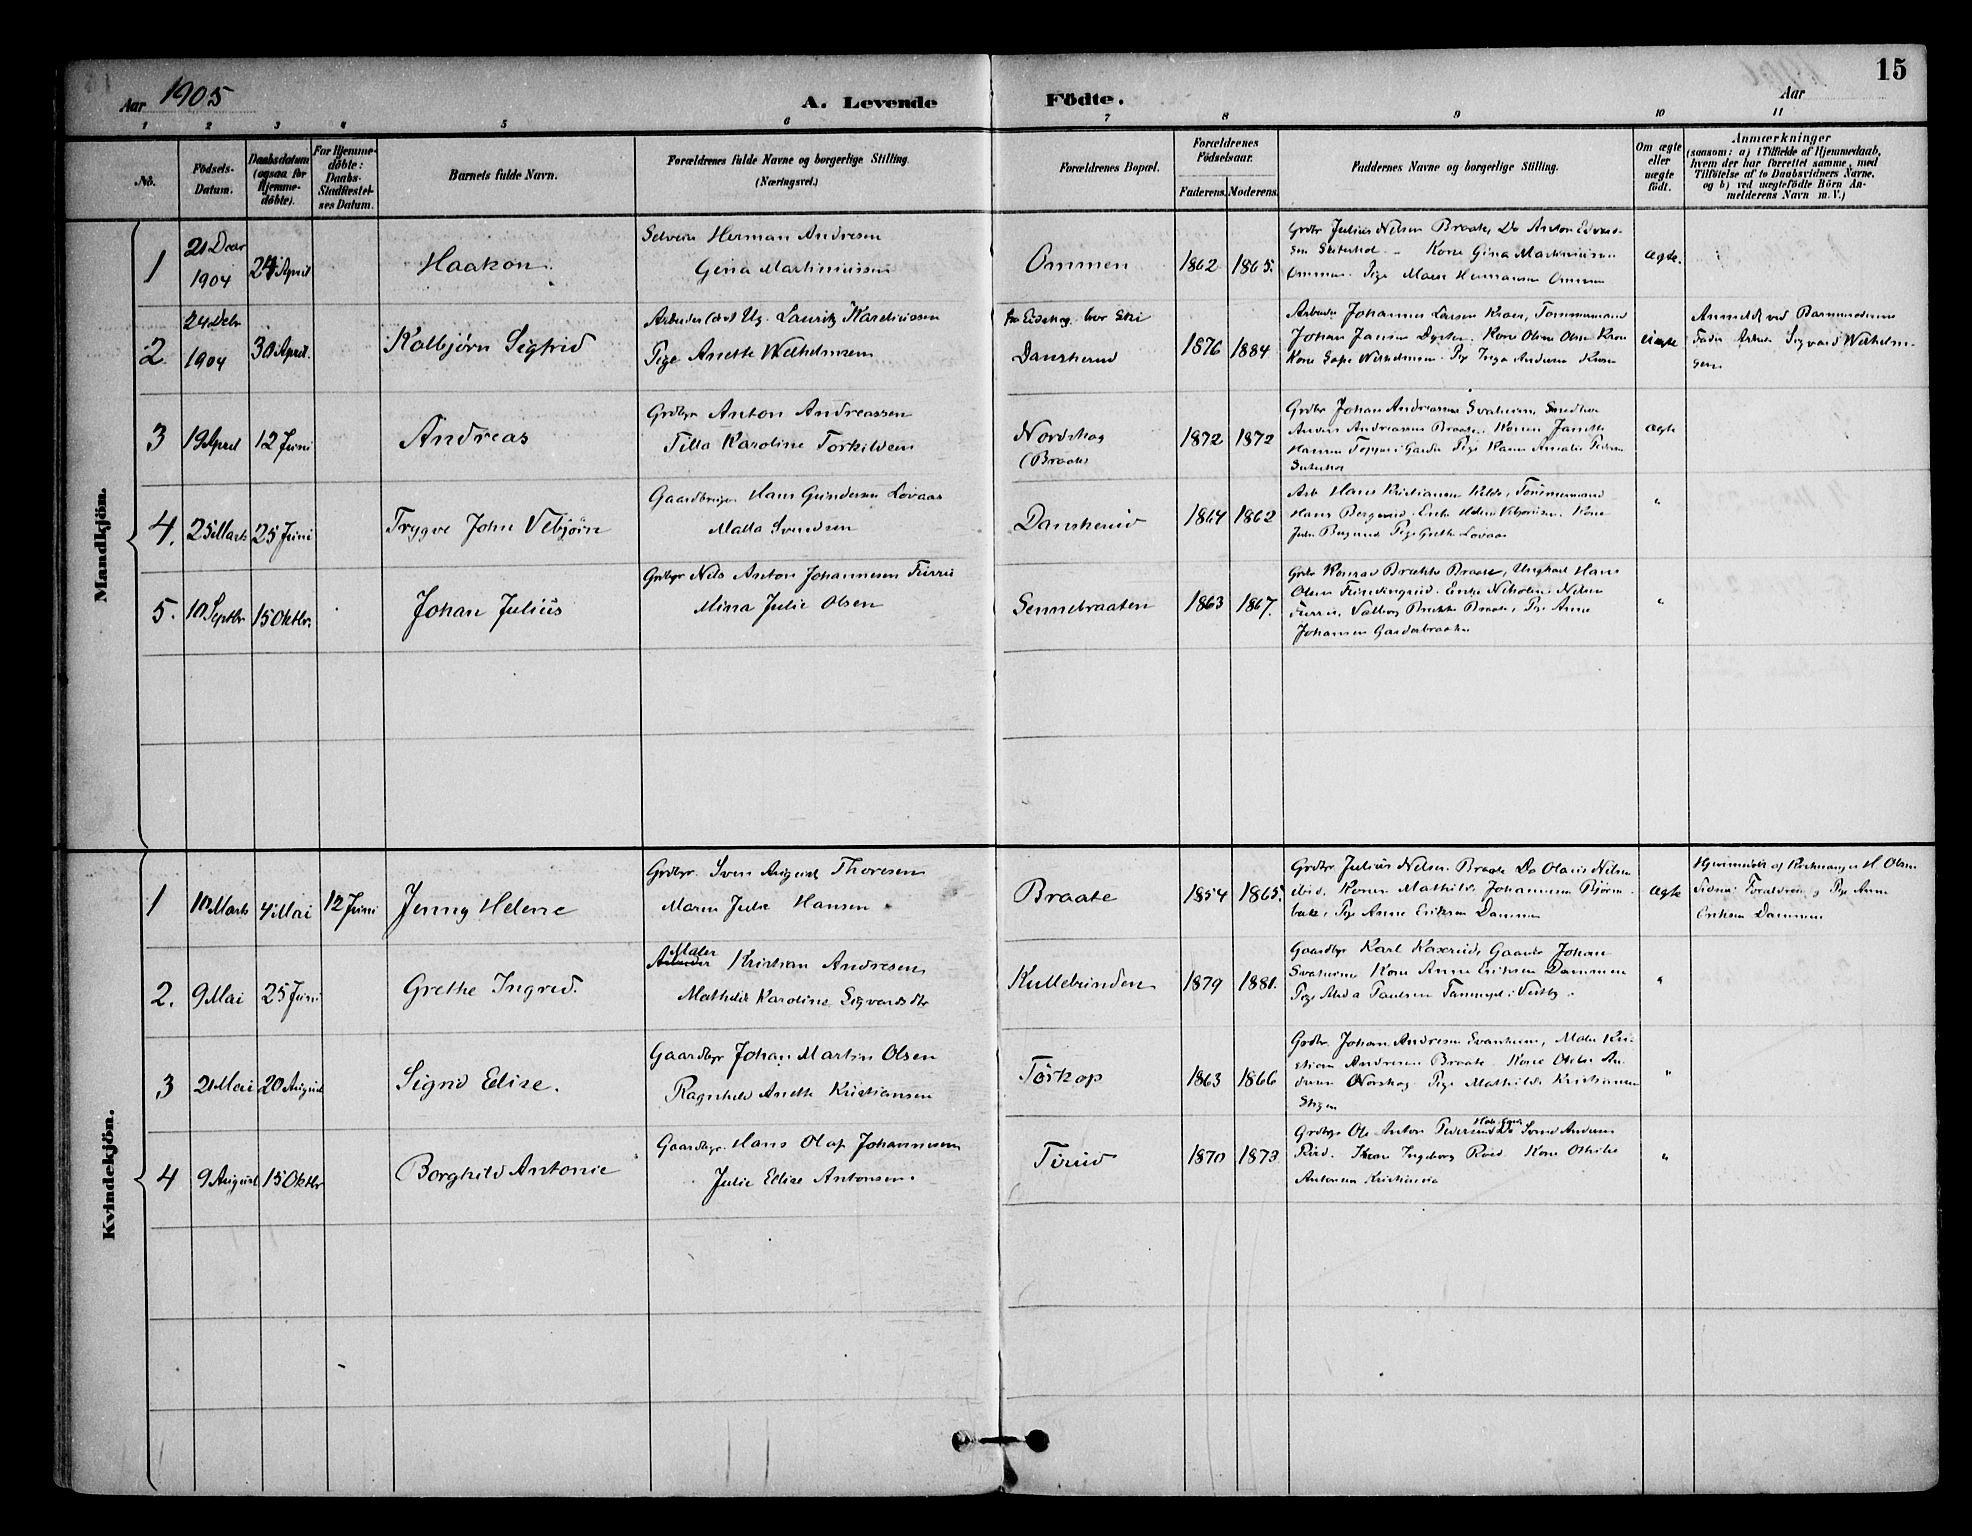 15
Aar 1905
A. Levende Födte.
Aar
1 2 3 4 5 6 7 8 9 10 11
No.
Födsels-
Datum.
Daabsdatum
(ogsaa for
Hjemme-
döbte).
For Hjemme-
döbte:
Daabs-
Stadfæstel-
ses Datum.
Barnets fulde Navn.
Forældrenes fulde Navne og borgerlige Stilling.
(Næringsvei.)
Forældrenes Bopæl.
Forældrenes
Födselsaar.
Faderens. Moderens.
Faddernes Navne og borgerlige Stilling.
Om ægte
eller
uægte
födt.
Anmærkninger
(saasom: a) i Tilfælde af Hjemmedaab,
hvem der har forrettet samme, med
Tilföielse af to Daabsvidners Navne,
og b) ved uægtefödte Börn An-
melderens Navn m. V.)
Mandkjön.
1
1904
24 April
Haakon
Herman Andresen
Gina Martiniussen
Ommen
1862 1865.
Grdbr Julius Nilsen Braate, Do Anton Edvard-
sen Kone Gina Martiniussen
Ommen. Pige Hermansen Ommen
ægte.
2.
24 Debr
1904
30 April.
Kolbjørn Sigfrid
Arbeider Ug. Lauritz Karelinssen
Pige Anette Wilhelmsen
fra Eidskog bor Ski
Danskerud
1876 1884
Arbeider Johannes Larsen Tømmermand
Johan Jansen Kone Oline Olsen
Kone Wilhelmsen. Inga Andersen
uægte
Anmeldt ved Barnemoderens
Fader Arbeider Sigvard Wilhelm-
sen
3
19 April
12 Juni
Andreas
Grdbr Anton Andreassen
Tilla Karoline Torkildsen
Nordskog
(Braate)
1872 1872
Grdbr Johan Andreassen Svaheim,
Anders Andreassen Braate. Konen Janette
Hansen Pige Amalie
ægte
4.
25 Marts
25 Juni
Trygve John Vebjørn
Gaardbruger Hans Gundersen Lovaas
Malla Svendsen
Danskerud
1864 1862
Arb Hans Kristiansen Tømmermand
Hans Enke Kone
Pige Grethe Lovaas
"
5.
10 Septbr
15 Oktbr.
Johan Julius
Grdbr Nils Anton Johannesen Furru
Mina Julie Olsen
Sennebraaten
1863 1867.
Konrad Brække Braate, Ungkarl Hans
Olsen Enke Nikoline Nilsen
Furru, Valborg Brække Braate, Pige Anna
Johansen Garderbraaten
"
Kvindekjön.
1
10 Marts
4 Mai
12 Juni
Jenny Helene
Grdbr. Sven August Thoresen
Maren Julie Hansen
Braate
1854 1865.
Grdbr. Julius Nilsen Braate Do Olaus Nilsen
ibid. Konen Mathilde Johannesen
Pige Anne Eriksen Dammen
ægte
Hjemmedøbt af H Olsen
Forældrene og Pige Anne
Eriksen Dammen
2.
9 Mai
25 Juni
Grethe Ingrid.
Maler
Arbeider Kristian Andresen
Mathilde Karoline Sigvardsdtr
Kullebunden
1879 1881.
Gaardbr Karl Johan
Svaheim Kone Anne Eriksen Dammen
Pige Paulsen i Vestby.
"
3
21 Mai
20 August
Sigrid Elise.
Gaardbr Johan Martin Olsen
Ragnhild Anette Kristiansen
Torkop
1863 1866
Grdbr. Johan Andresen Svanheim, Maler Kri-
stian Andresen Braate Kone An-
dresen Nordskog. Pige Mathilde Kristiansen
"
4
9 August
15 Oktbr
Borghild Antonie
Gaardbr. Hans Olaf Johannesen
Julie Elise Antonsen.
Tirud
1870 1873
Grdbr Ole Anton Pedersen Do Svend Andersen
Kone Ingeborg Kone Othilie
Antonsen Kristiania
"